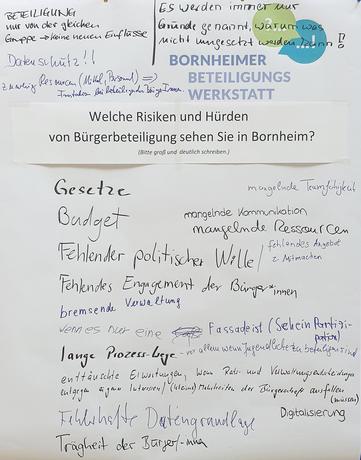 BETEILIGUNG
nur von der gleichen
Gruppe → keine neuen Einflüsse
Es werden immer nur
Gründe genannt, warum was
nicht umgesetzt werden kann!
Datenschutz!!
Resourcen (Mittel, Personal) ⇒
BORNHEIMER
BETEILIGUNGS
WERKSTATT
Welche Risiken und Hürden
von Bürgerbeteiligung sehen Sie in Bornheim?
(Bitte groß und deutlich schreiben.)
Gesetze
mangelnde Teamfähigkeit
Budget
mangelnde Kommunikation
mangelnde Ressourcen
Fehlender politischer Wille/
fehlendes Angebot
z. Mitmachen
Fehlendes Engagement der Bürger*innen
bremsende Verwaltung
wenn es nur eine Fassade ist (Scheinpartizipation)
lange Prozesswege - vor allem wenn Jugendliche zu beteiligen sind
enttäuschte Erwartungen, wenn Rats- und Verwaltungsentscheidungen
entgegen eigenen Interessen/(kleinen) Mehrheiten der Bürgerschaft ausfallen
(müssen)
Fehlerhafte Datengrundlage
Digitalisierung
Trägheit der Bürger/-innen